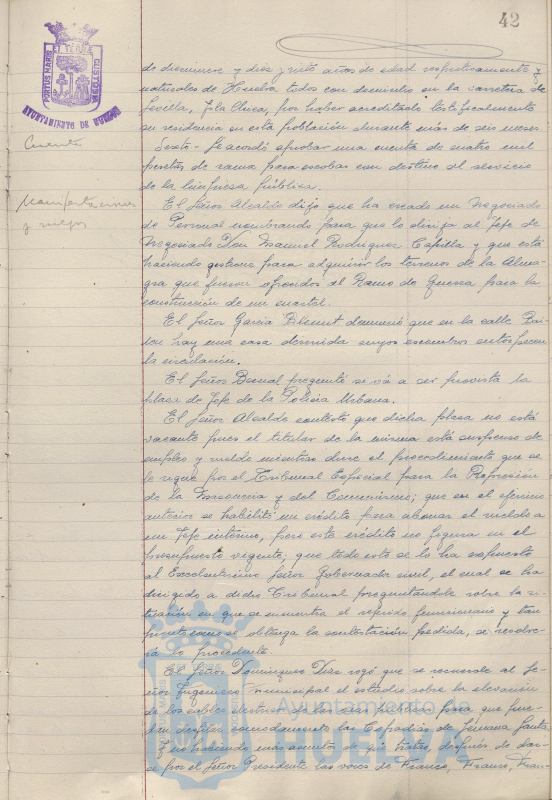 42
PORTUS MARIS ET TERRÆ CUSTODIA
AYUNTAMIENTO DE HUELVA
de diecinueve y diez y siete años de edad respectivamente y
naturales de Huelva todos con domicilio en la carretera de
Sevilla, Isla Chica, por haber acreditado testificalmente
su residencia en esta población durante más de seis meses.
Cuenta
Sexto.- Se acordó aprobar una cuenta de mil
pesetas de rama para escobas con destino al servicio
de la limpieza pública.
Manifestaciones
y ruegos
El Señor Alcalde dijo que ha creado un Negociado
de Personal nombrando para que lo dirija al Jefe de
Negociado Don Manuel Rodríguez Capilla y que está
haciendo gestiones para adquirir los terrenos de la
que fueron ofrecidos al Ramo de Guerra para la
construcción de un cuartel.
El Señor García denunció que en la calle
hay una casa derruida cuyos escombros entorpecen
la circulación.
El Señor Bernal preguntó se vá a ser provista la
plaza de Jefe de la Policía Urbana.
El Señor Alcalde contestó que dicha plaza no está
vacante pues el titular de la misma está suspenso de
empleo y sueldo mientras dure el procedimiento que se
le sigue por el Tribunal Especial para la Represión
de la Masonería y del Comunismo; que en el ejercicio
anterior se habilitó un crédito para abonar el sueldo a
un Jefe interino, pero este crédito no figura en el
Presupuesto vigente; que todo esto se lo ha expuesto
al Excelentísimo Señor Gobernador civil, el cual se ha
dirigido a dicho Tribunal preguntándole sobre la si-
tuación en que se encuentra el referido funcionario y tan
pronto como se obtenga la contestación pedida, se resolve-
rá lo procedente.
El Señor Domínguez rogó que se recuerde al Se-
ñor Ingeniero municipal el estudio sobre la elevación
de los cables eléctricos de las vías públicas para que pue-
dan desfilar cómodamente las Cofradías de Semana Santa.
Y no habiendo más asuntos de qué tratar, después de dar-
se por el Señor Presidente las voces de Franco, Franco, Fran-
Ayuntamiento de
HUELVA